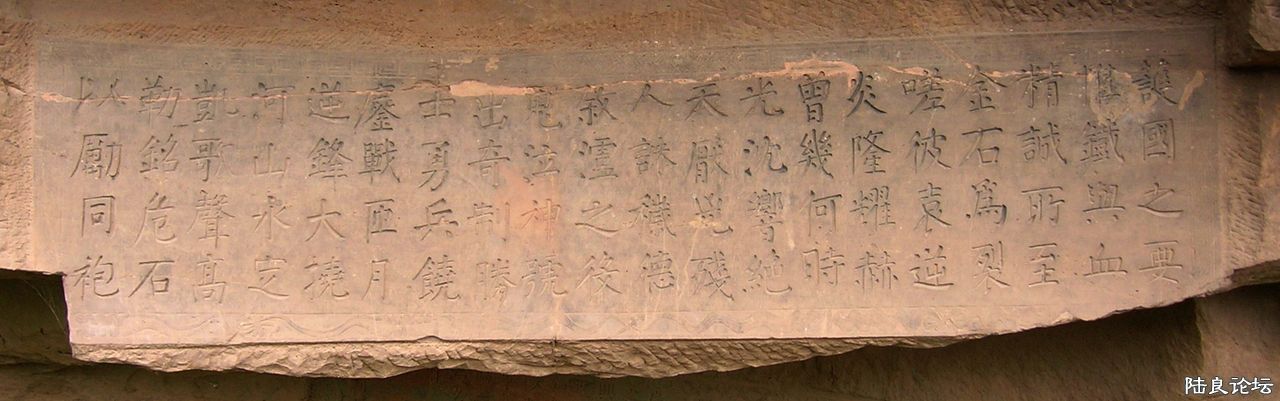 護國之要
惟鐵與血
精誠所至
金石爲裂
嗟彼袁逆
炎隆耀赫
曾幾何時
光沈響絶
天厭兇殘
人誅穢德
敘瀘之役
鬼泣神號
出奇制勝
士勇兵饒
鏖戰匝月
逆鋒大撓
河山永定
凱歌聲高
勒銘危石
以勵同袍
陆良论坛